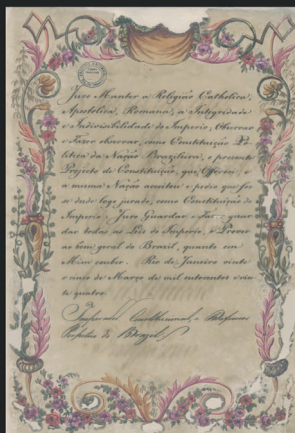 Juro Manter a Religião Catholica,
Apostolica, Romana, a Integridade
e Indivisibilidade do Imperio, Observar
e Fazer observar, como Constituição Po-
litica da Nação Brazileira, o presente
Projecto de Constituição, que Offereci, e
a mesma Nação aceitou e pedio que fos-
se desde logo jurado, como Constituição do
Imperio: Juro Guardar e Fazer guar-
dar todas as Leis do Imperio, e Prover
ao bem geral do Brazil, quanto em
Mim couber. Rio de Janeiro vinte
e cinco de Março de mil oitocentos e vin-
te quatro.
Imperador Constitucional, e Defensor
Perpetuo do Brazil